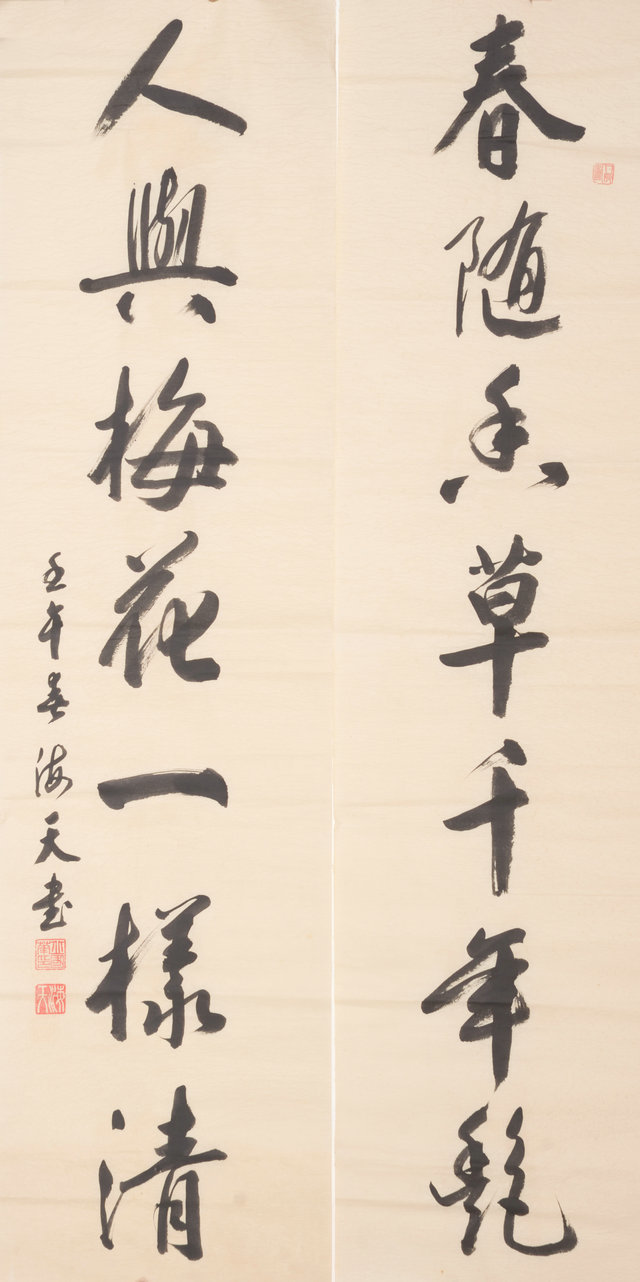 春随香草千年艷
人與梅花一樣清
壬午春海天書
海天